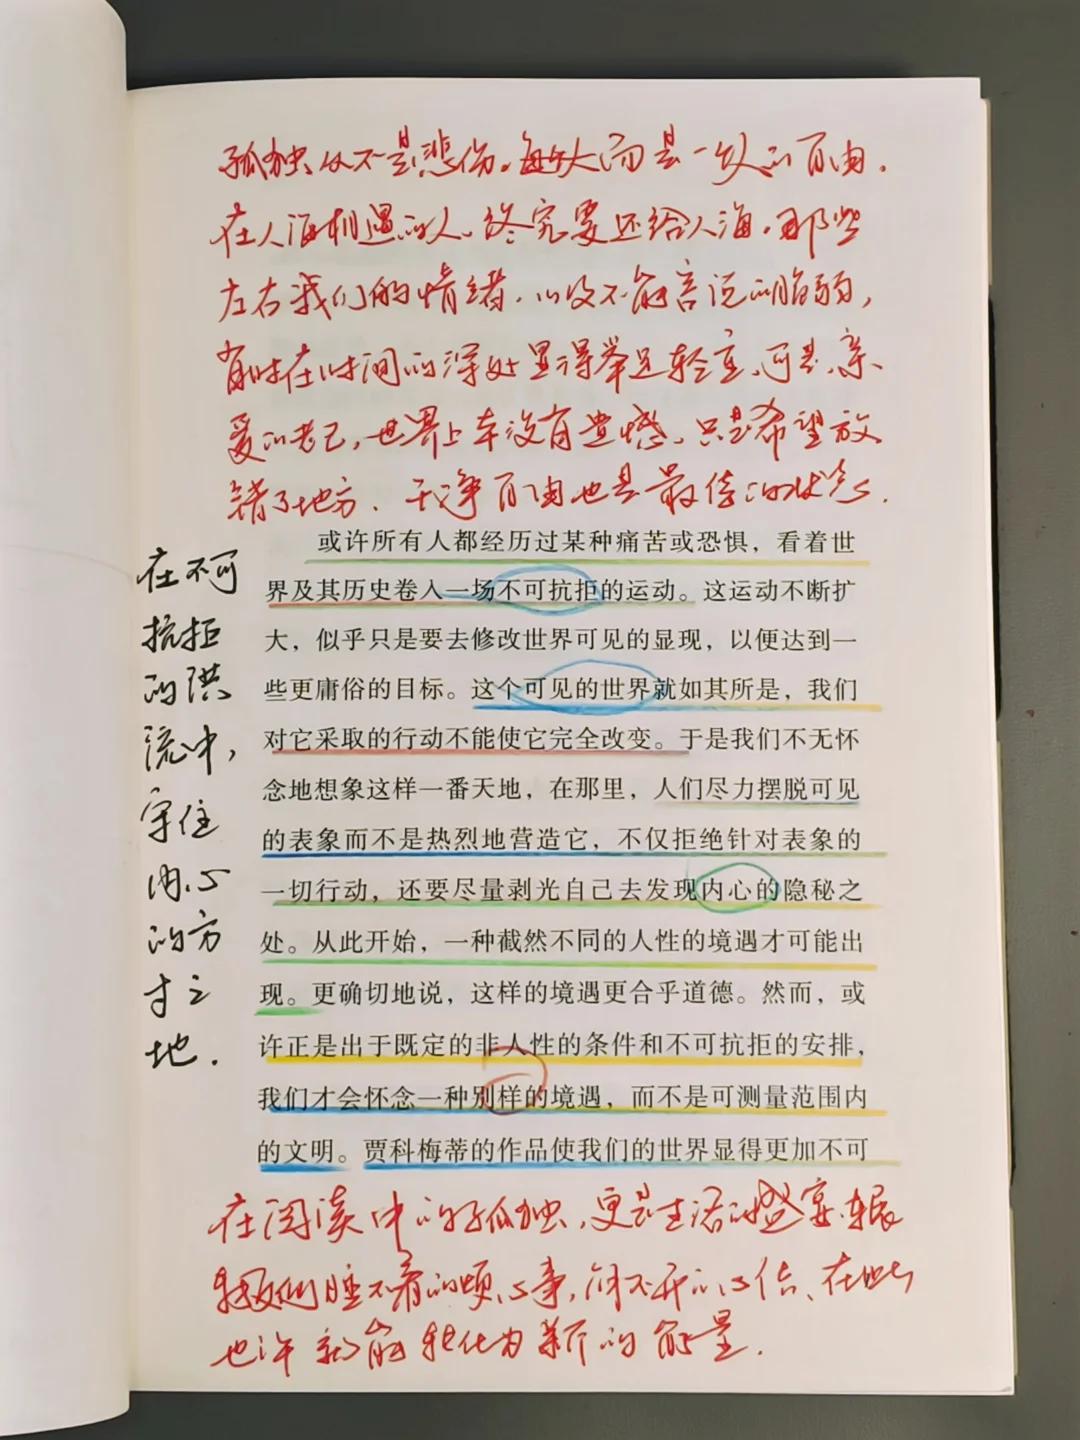 孤独从不是悲伤。每每反而是一次的自由.
在人海相遇的人、终究要还给人海.那些
左右我们的情绪.以及不能言说的脆弱,
有时在时间的深处显得举足轻重、可是、亲
爱的老己,世界上本没有遗憾、只是希望放
错了地方. 干净自由也是最佳的状态.
或许所有人都经历过某种痛苦或恐惧，看着世
界及其历史卷入一场不可抗拒的运动。这运动不断扩
大，似乎只是要去修改世界可见的显现，以便达到一
些更庸俗的目标。这个可见的世界就如其所是，我们
对它采取的行动不能使它完全改变。于是我们不无怀
念地想象这样一番天地，在那里，人们尽力摆脱可见
的表象而不是热烈地营造它，不仅拒绝针对表象的
一切行动，还要尽量剥光自己去发现内心的隐秘之
处。从此开始，一种截然不同的人性的境遇才可能出
现。更确切地说，这样的境遇更合乎道德。然而，或
许正是出于既定的非人性的条件和不可抗拒的安排，
我们才会怀念一种别样的境遇，而不是可测量范围内
的文明。贾科梅蒂的作品使我们的世界显得更加不可
在不可
抗拒
的洪
流中,
守住
内心
的方
寸之
地.
在阅读中的孤独,更是生活的盛宴、辗
转反侧睡不着的烦心事,解不开的心结、在此
也许都能转化为新的能量.